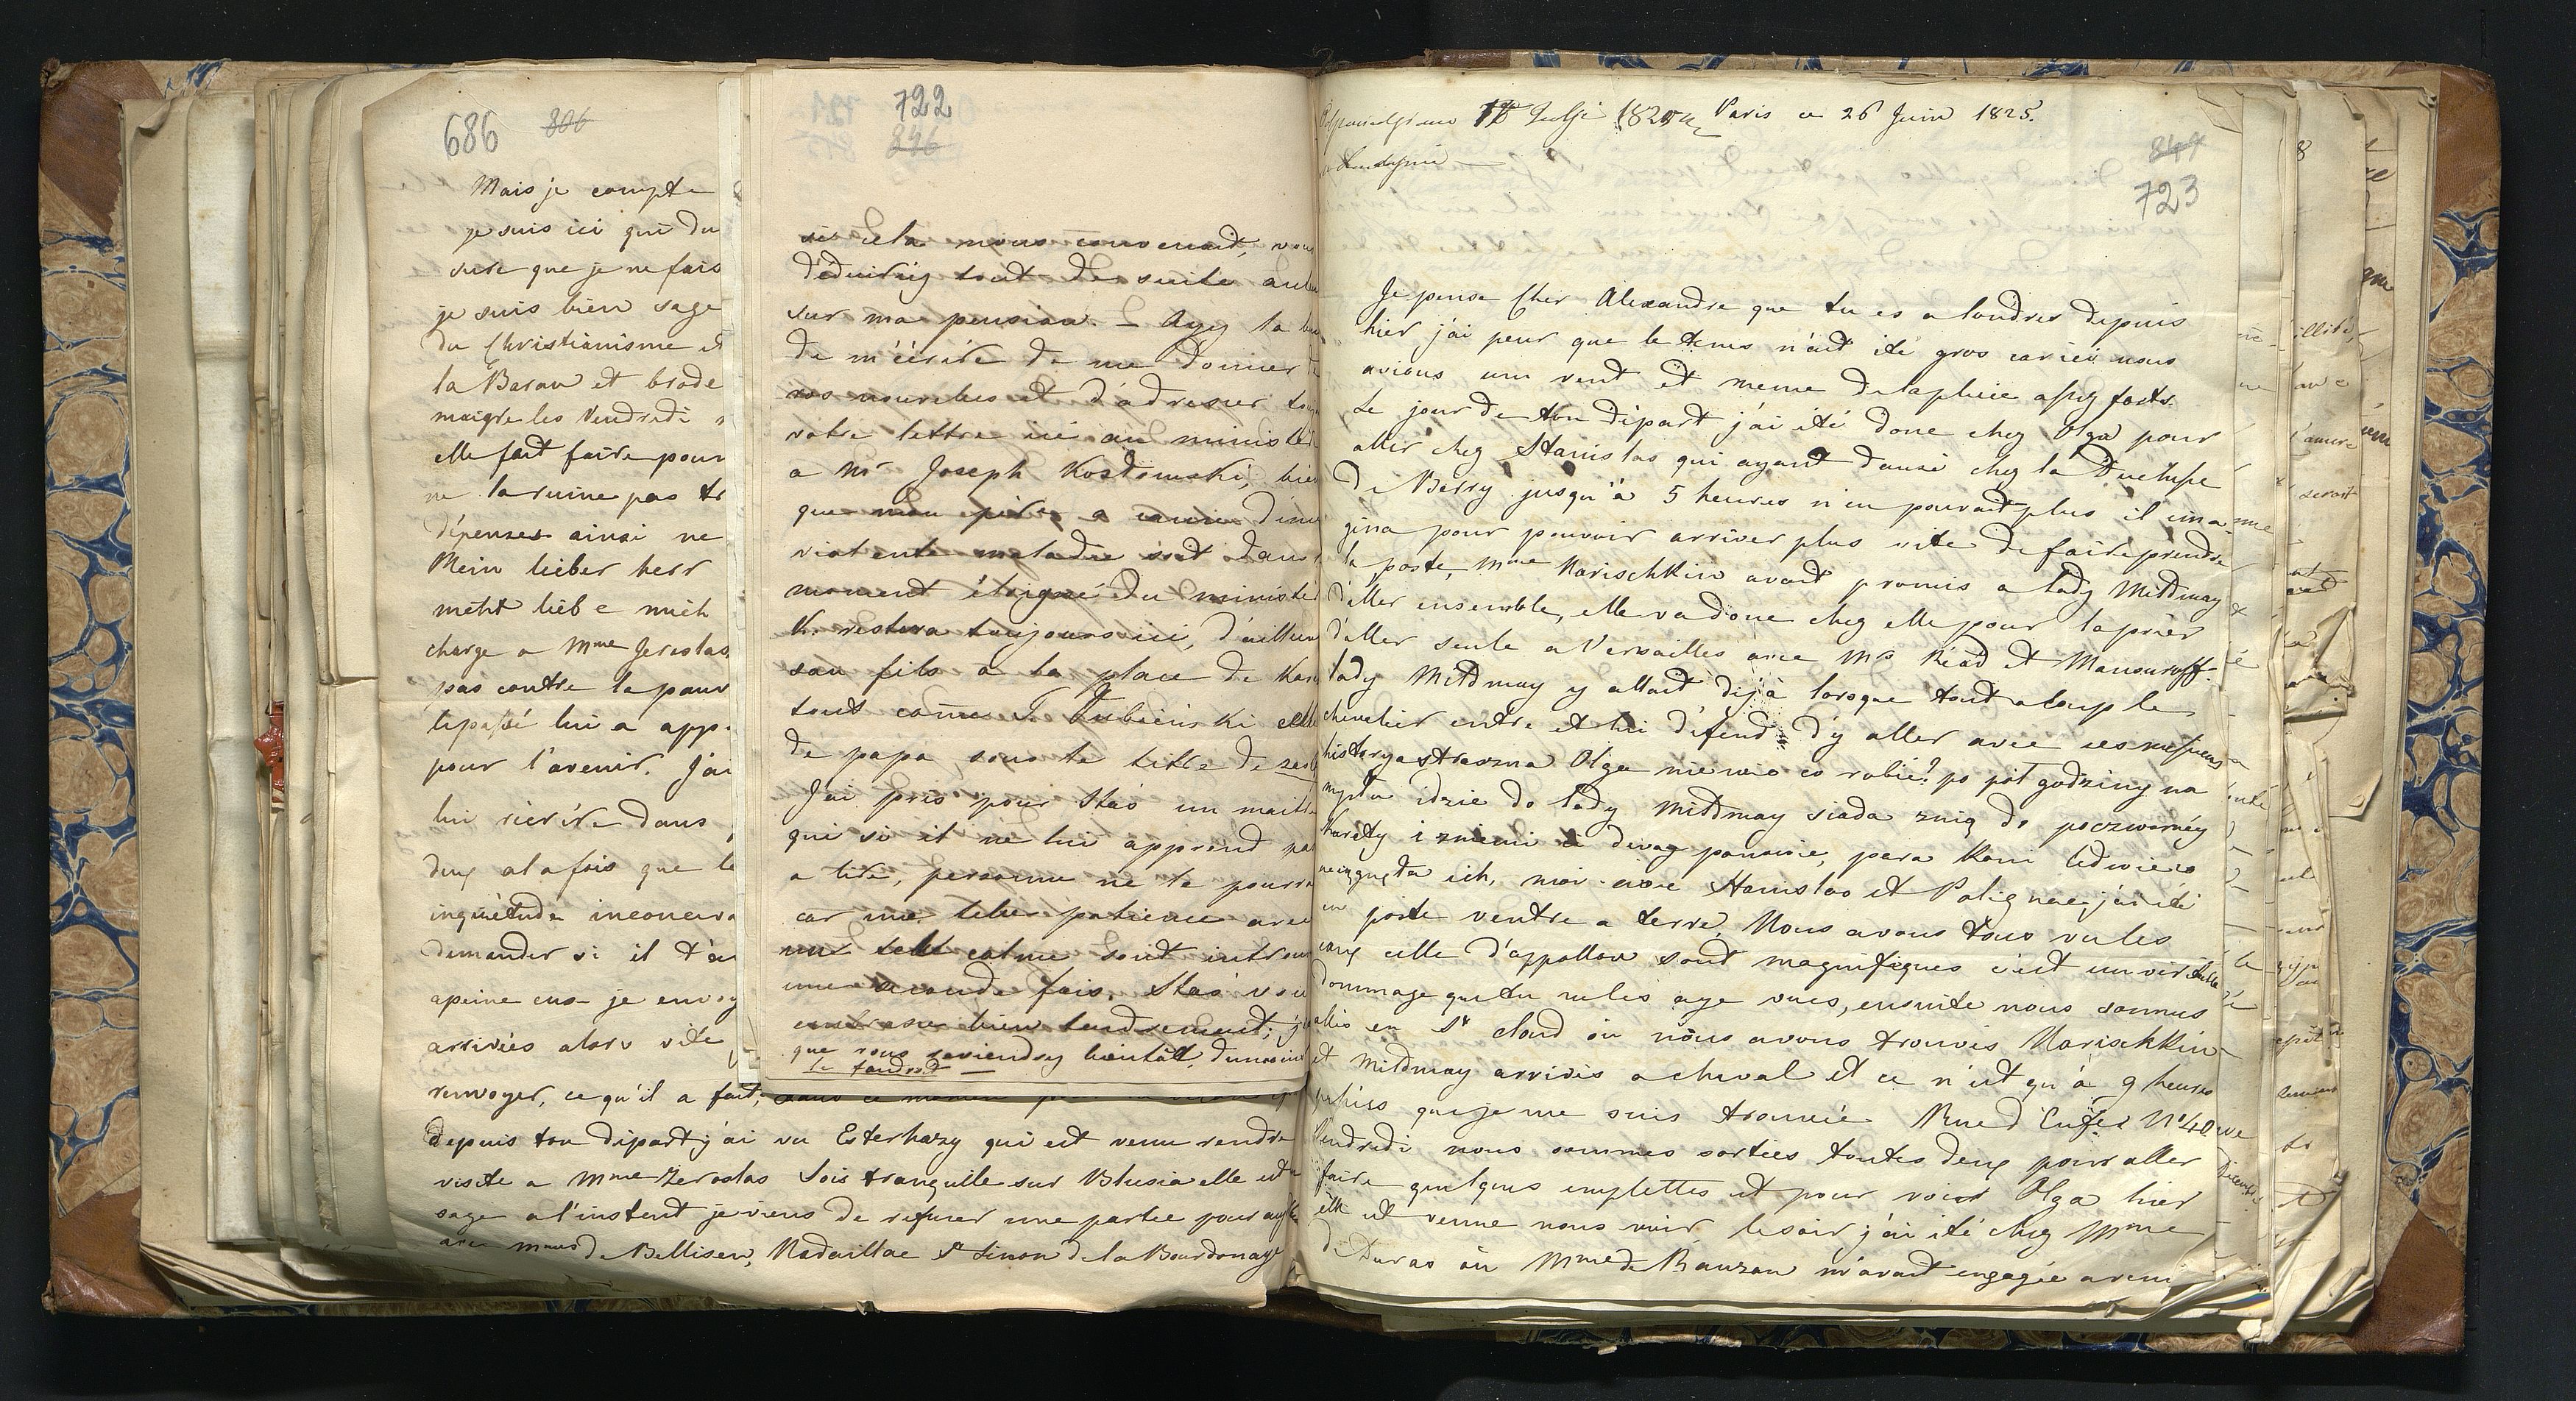 686 806
Mais je compte
je suis ici qui du
sure que je ne fais
je suis bien sage
du Christianisme et
la Baron et brode
maigre les Vendredi
elle fait faire pour
ne la ruine pas
dépenses ainsi ne
Mein lieber herr
mehr liebe mich
charge a Mme Zeroslas
pas contre la pauv
le passé lui a app
pour l'avenir. J'ai
lui récrire dans
deux a la fois que le
inquiétude inconceva
demander si il t'a
apeine eus-je envoy
arrivées alors vite
renvoyer, ce qu'il a fait,
depuis ton départ j'ai vu Esterhazy qui est venu rendre
visite a Mme Zeroslas Sois tranquille sur Blusia elle est
sage a l'instent je viens de refuser une partie pour
avec Mmes de Bellisen, Nadaillac St Simon de la Bourdonaye
722
846
si cela nous convenait, vous
déduiriez tout de suite
sur ma pension. – Ayez la
de m'écrire de me donner
vos nouvelles et d'adresser
votre lettre ici au ministè
a Mr Joseph Kossowski, bien
que mon père a cause d'une
violente maladie soit dans
moment éloigné du ministè
K. restera toujours ici, d'ailleurs
son fils a la place de
tout come T. Lubienski celle
de papa sous le titre de
J'ai pris pour Stas un maitre
qui si il ne lui apprend pas
a lire, personne ne le pourra
car une telle patience avec
un tel calme sont introu
une seconde fois. Stas vous
embrasse bien tendrement; je
que vous reviendrez bientôt, dumoins
le faudrait —
Odpowiedziano 12 Julji 1825 Paris ce 26 Juin 1825.
z Londynu —
847
723
Je pense Cher Alexandre que tu es a londres depuis
hier, j'ai peur que le tems n'ait été gros car ici nous
avions um vent et meme delapluie assez forts.
Le jour de ton départ j'ai été donc chez Olga pour
aller chez Stanislas qui ayant dansé chez la Duchesse
de Berry jusqu'à 5 heures n'en pouvait plus il ima-
gina pour pouvoir arriver plus vite de faire prendre
la poste, Mme Narischkin avait promis a lady Mildmay
d'aller ensemble, elle va donc chez elle pour la prier
d'aller seule a Versailles avec Mrs Read et Mansuroff.
lady Mildmay y allait déjà lorsque tout a coup le
chevalier entre et lui défend d'y aller avec ces messieurs
historya straszna Olga nie wie co robić? po pół godziny na
mysłu idzie do lady Mildmay siada z nią do poczwornéy
karety i z niemi i dway panowie, para koni ledwie co
nieciągnęła ich, moi avec Stanislas et Polignac, j'ai été
en poste ventre a terre. Nous avons tous vu les
eaux celle d'appollon sont magnifiques c'est un véritable
dommage que tu ne les aye vues, ensuite nous sommes
allés en St cloud où nous avons trouvés Narischkin
et Mildmay arrivés a cheval et ce n'est qu'à 9 heures
passées que je me suis trouvée Rue d'Enfer No 40
Vendredi nous sommes sorties toutes deux pour aller
faire quelques emplettes et pour voir Olga hier
elle est venue nous voir, le soir j'ai été chez Mme
de Duras où Mme de Rauzan m'avait engagée a venir